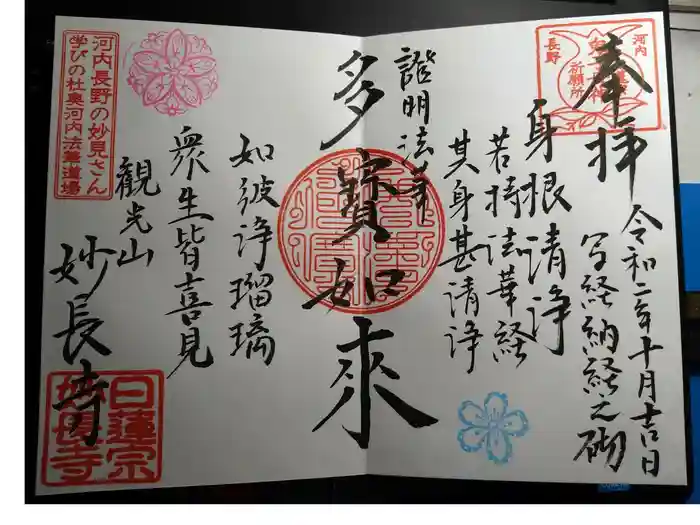 奉拝
令和二年十月吉日
写経納経之砌
身根清浄
若持法華経
其身甚清浄
證明法華
多寳如来
如彼浄瑠璃
衆生皆喜見
觀光山
妙長寺
河内
長野
祈願所
河内長野の妙見さん
学びの杜奥河内法華道場
日蓮宗
妙長寺